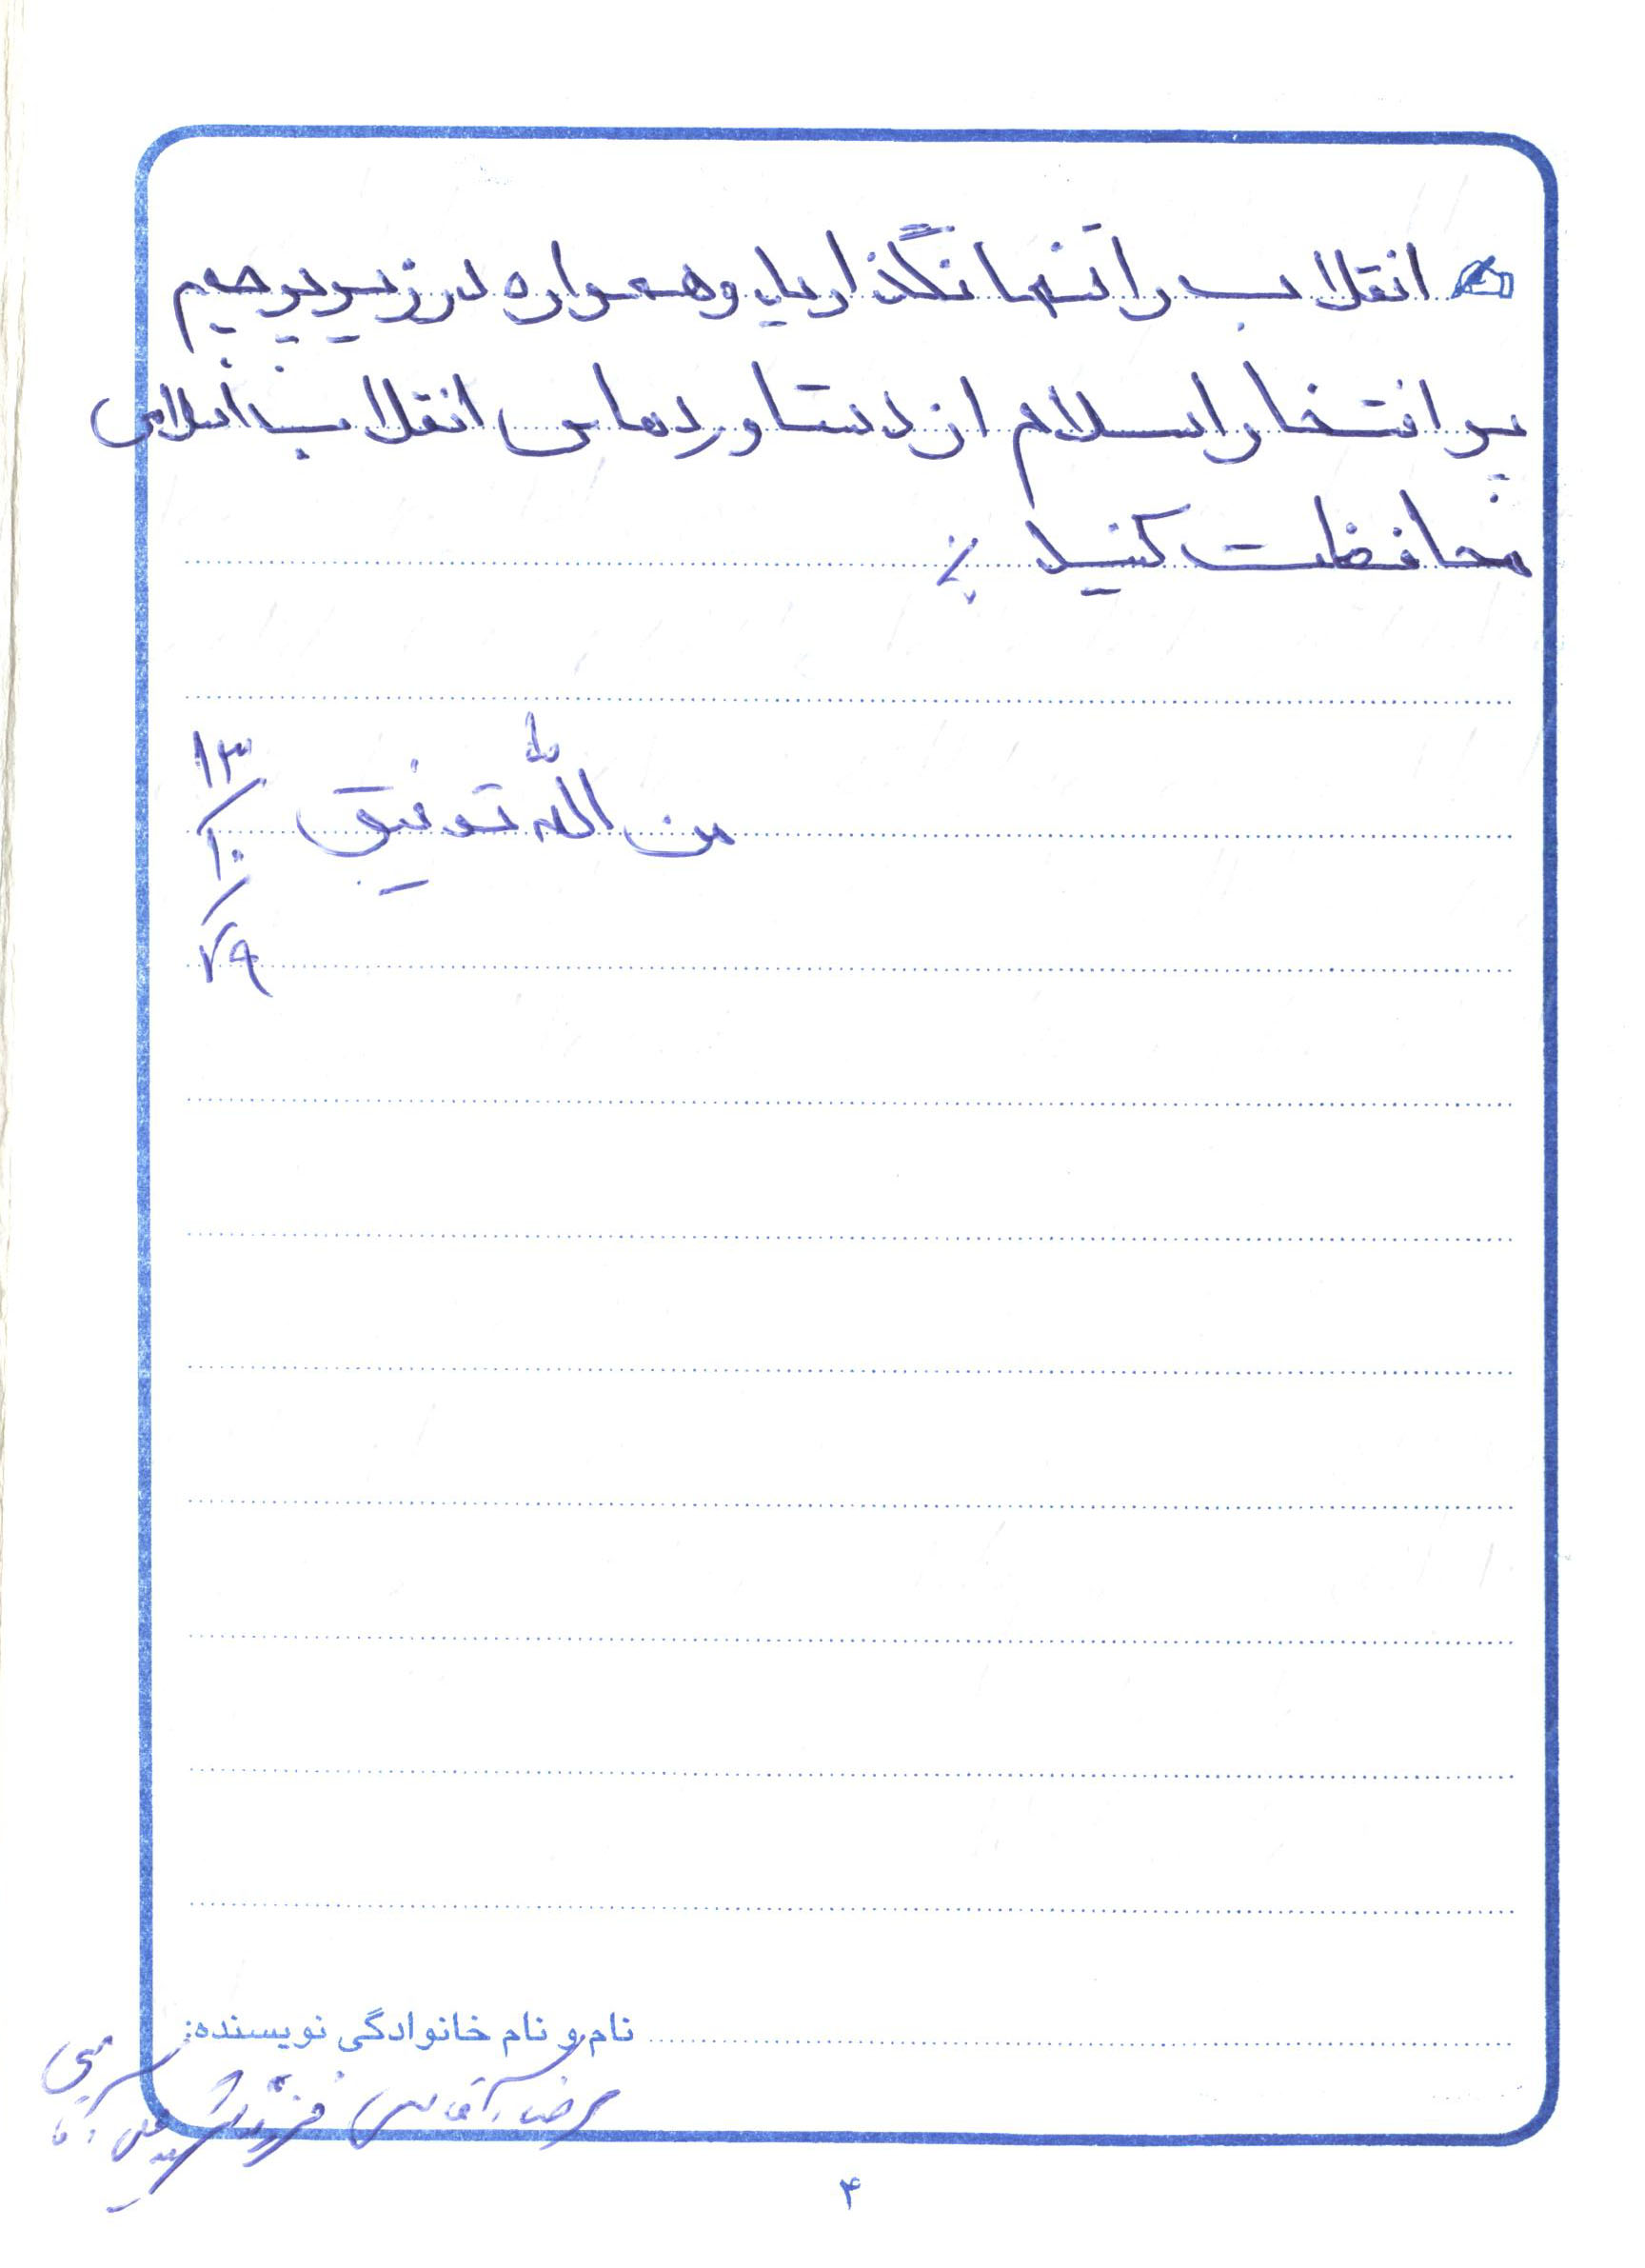 انقلاب را تنها نگذارید و همواره در زیر پرچم
پر افتخار اسلام از دستاوردهای انقلاب اسلامی
محافظت کنید ٪
من الله توفیق
۱۳
/
۱۰
/
۷۹
نام و نام خانوادگی نویسنده:
رضا آقاسی فرزند شهید علی آقا
۴